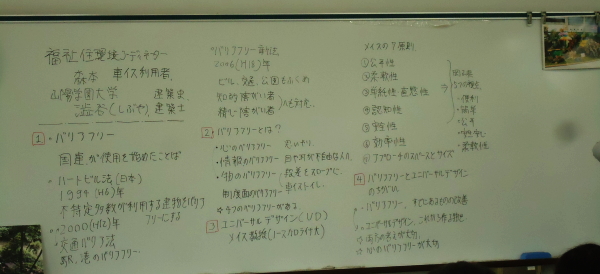 福祉住環境コーディネーター
森本 車イス利用者
山陽学園大学 建築史
澁谷(しぶや) 建築士
1 ・バリアフリー
国連が使用を始めたことば
・ハートビル法(日本)
1994(H6)年
不特定多数が利用する建物をバリア
フリーにする
・2000(H12)年
・交通バリア法
駅、港のバリアフリー…
・バリアフリー新法
2006(H18)年
ビル、交通、公園もふくめ
知的障がい者
精神障がい者 も対応
2 ・バリアフリーとは?
・心のバリアフリー 思いやり
・情報のバリアフリー 目や耳が不自由な人
・物のバリアフリー 段差をスロープに
車イストイレ
制度面のバリアフリー
4つのバリアフリーがある
3 ユニバーサルデザイン(UD)
メイス教授(ノースカロライナ大)
メイスの7原則
①公平性
②柔軟性
③単純性 直感性
④認知性
⑤安全性
⑥効率性
⑦アプローチのスペースとサイズ
5つの視点
・便利
・簡単
・公平
・安全
・柔軟性
4 バリアフリーとユニバーサルデザイン
のちがい
・バリアフリー、すでにあるものの改善
・ユニバーサルデザイン、これから作る
心のバリアフリーが大切